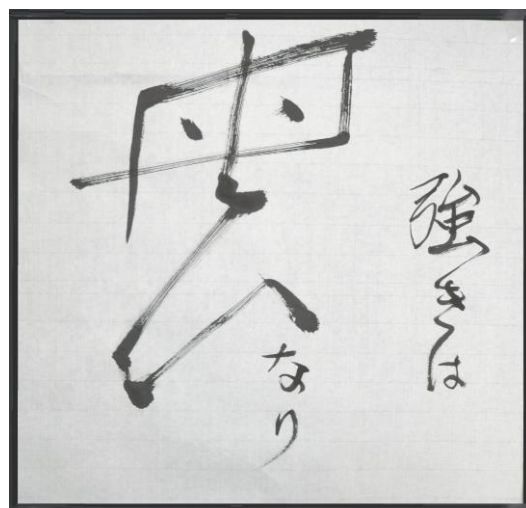 強きは
なり